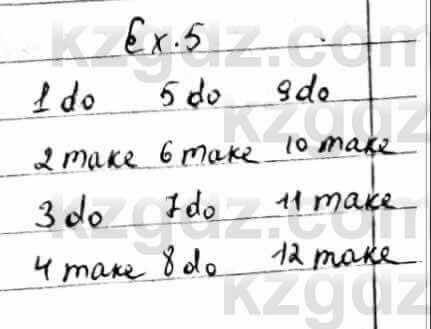 Ex. 5
1 do 5 do 9 do
2 make 6 make 10 make
3 do 7 do 11 make
4 make 8 do 12 make
kzgdz.com
kzgdz